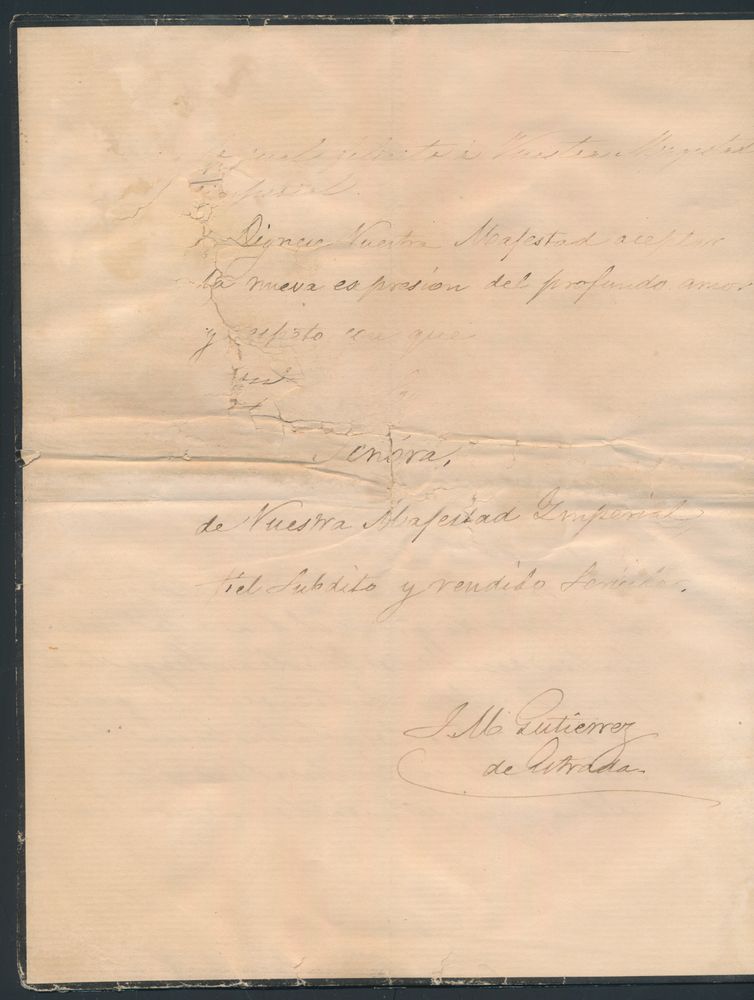 á Vuestra Magestad
Imperial.
Dignese Vuestra Majestad aceptar
la nueva espresion del profundo amor
y respeto con que
Señora,
de Vuestra Majestad Imperial,
fiel Subdito y rendido Servidor.
J. M. Gutierrez
de Estrada